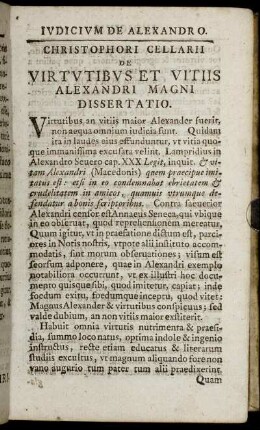 IVDICIVM DE ALEXANDRO.
CHRISTOPHORI CELLARII
DE
VIRTVTIBVS ET VITIIS
ALEXANDRI MAGNI
DISSERTATIO.
Virtutibus, an vitiis maior Alexander fuerit,
non aequa omnium iudicia sunt. Quidam
ita in laudes eius effunduntur, vt vitia quo-
que immanissima excusata velint. Lampridius in
Alexandro Seuero cap. XXX Legit, inquit, & vi-
tam Alexandri (Macedonis) quem praecipue imi-
tatus est: etsi in eo condemnabat ebrietatem &
crudelitatem in amicos, quamuis vtrumque de-
fendatur a bonis scriptoribus. Contra saeuerior
Alexandri censor est Annaeus Seneca, qui vbique
in eo obseruat, quod reprehensionem mereatur.
Quum igitur, vt in praefatione dictum est, parci-
ores in Notis nostris, vtpote alii instituto accom-
modatis, sint morum obseruationes; visum est
seorsum adponere, quae in Alexandri exemplo
notabiliora occurrunt, vt ex illustri hoc docu-
mento quisque sibi, quod imitetur, capiat: inde
foedum exitu, foedumque inceptu, quod vitet:
Magnus Alexander & virtutibus conspicuus; sed
valde dubium, an non vitiis maior exstiterit.
Habuit omnia virtutis nutrimenta & praesi-
dia, summo loco natus, optima indole & ingenio
instructus, recte etiam educatus & literarum
studiis excultus, vt magnum aliquando fore non
vano augurio tum pater tum alii praedixerint.
Quam